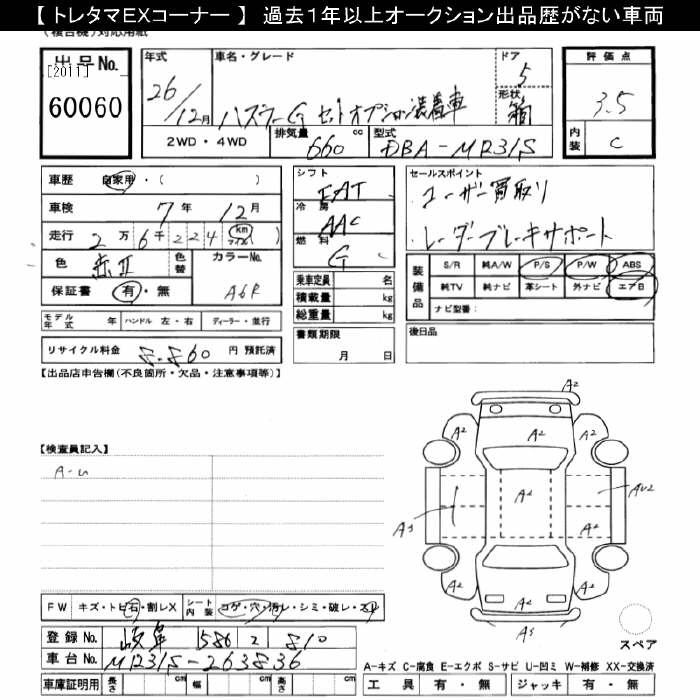 【 トレタマＥＸコーナー 】 過去１年以上オークション出品歴がない車両
(複合機)対応用紙
出品No.
[2011]
60060
年式
26/12月
車名・グレード
ハスラーG セットオプション装着車
ドア
5
形状
箱
評価点
3.5
内装
C
2WD・4WD
排気量
660 cc
型式
DBA-MR31S
車歴 自家用・( )
車検 7年 12月
走行 2万6千224 km マイル( )
色 赤II
色替
カラーNo.
A6R
保証書 有・無
モデル年式 年 ハンドル 左・右 ディーラー・並行
リサイクル料金 8,860 円 預託済
シフト
FAT
冷房
AAC
燃料
G
乗車定員 名
積載量 kg
総重量 kg
書類期限
月 日
セールスポイント
ユーザー買取り
レーダーブレーキサポート
装備品
S/R 純A/W P/S P/W ABS
純TV 純ナビ 革シート 外ナビ エアB
ナビ型番：
後日品
【出品店申告欄(不良箇所・欠品・注意事項等)】
【検査員記入】
A-u
A2
A2 A2 A2
A2 AU2
A3
A2
A2 A2
A3
スペア
FW キズ・トビ石・割レX シート内装 コゲ・穴・汚レ・シミ・破レ・スレ
登録No. 岐阜 586 2 810
車台No. MR31S-263836
車庫証明用 長さ cm 幅 cm 高さ cm
A-キズ C-腐食 E-エクボ S-サビ U-凹ミ W-補修 XX-交換済
工具 有・無 ジャッキ 有・無